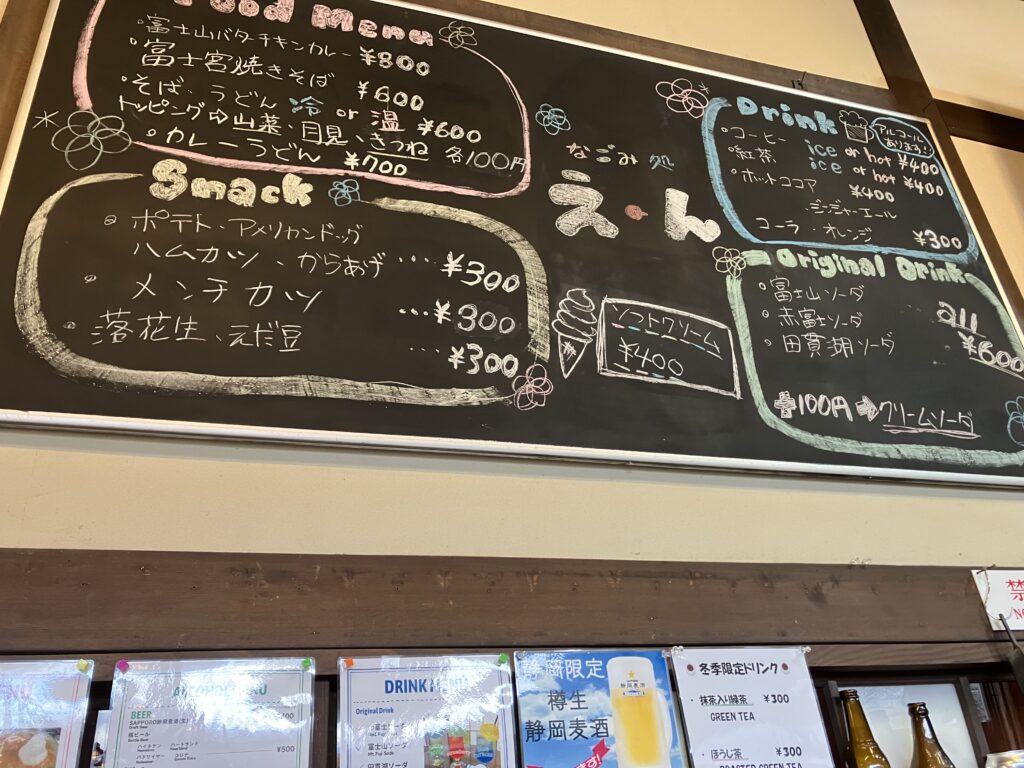 Food Menu
・富士山バターチキンカレー ¥800
・富士宮焼きそば ¥600
・そば、うどん 冷 or 温 ¥600
トッピング⇨山菜、月見、きつね 各100円
・カレーうどん ¥700
Snack
・ポテト・アメリカンドッグ
ハムカツ、からあげ ・・・・ ¥300
・メンチカツ ・・・ ¥300
・落花生、えだ豆 ・・・・ ¥300
なごみ処
え・ん
ソフトクリーム
¥400
Drink
アルコール
あります!
・コーヒー ice or hot ¥400
・紅茶 ice or hot ¥400
・ホットココア ¥400
ジンジャーエール
コーラ・オレンジ ¥300
Original Drink
・富士山ソーダ
・赤富士ソーダ
・田貫湖ソーダ
all ¥600
+100円➩クリームソーダ
禁
ALCOHOL MENU
BEER
SAPPORO静岡麦酒(生)
Draft Beer
瓶ビール
Bottle Beer
ハイネケン
Heineken
ハートランド
Heartland
バドワイザー
Budweiser
コロナ
Corona Extra
¥500
DRINK MENU
Original Drink
富士山ソーダ
Mt.Fuji Soda
田貫湖ソーダ
静岡限定
樽生
静岡麦酒
静岡麦酒
冬季限定ドリンク
・抹茶入り緑茶 ¥300
GREEN TEA
・ほうじ茶 ¥300
ROASTED GREEN TEA